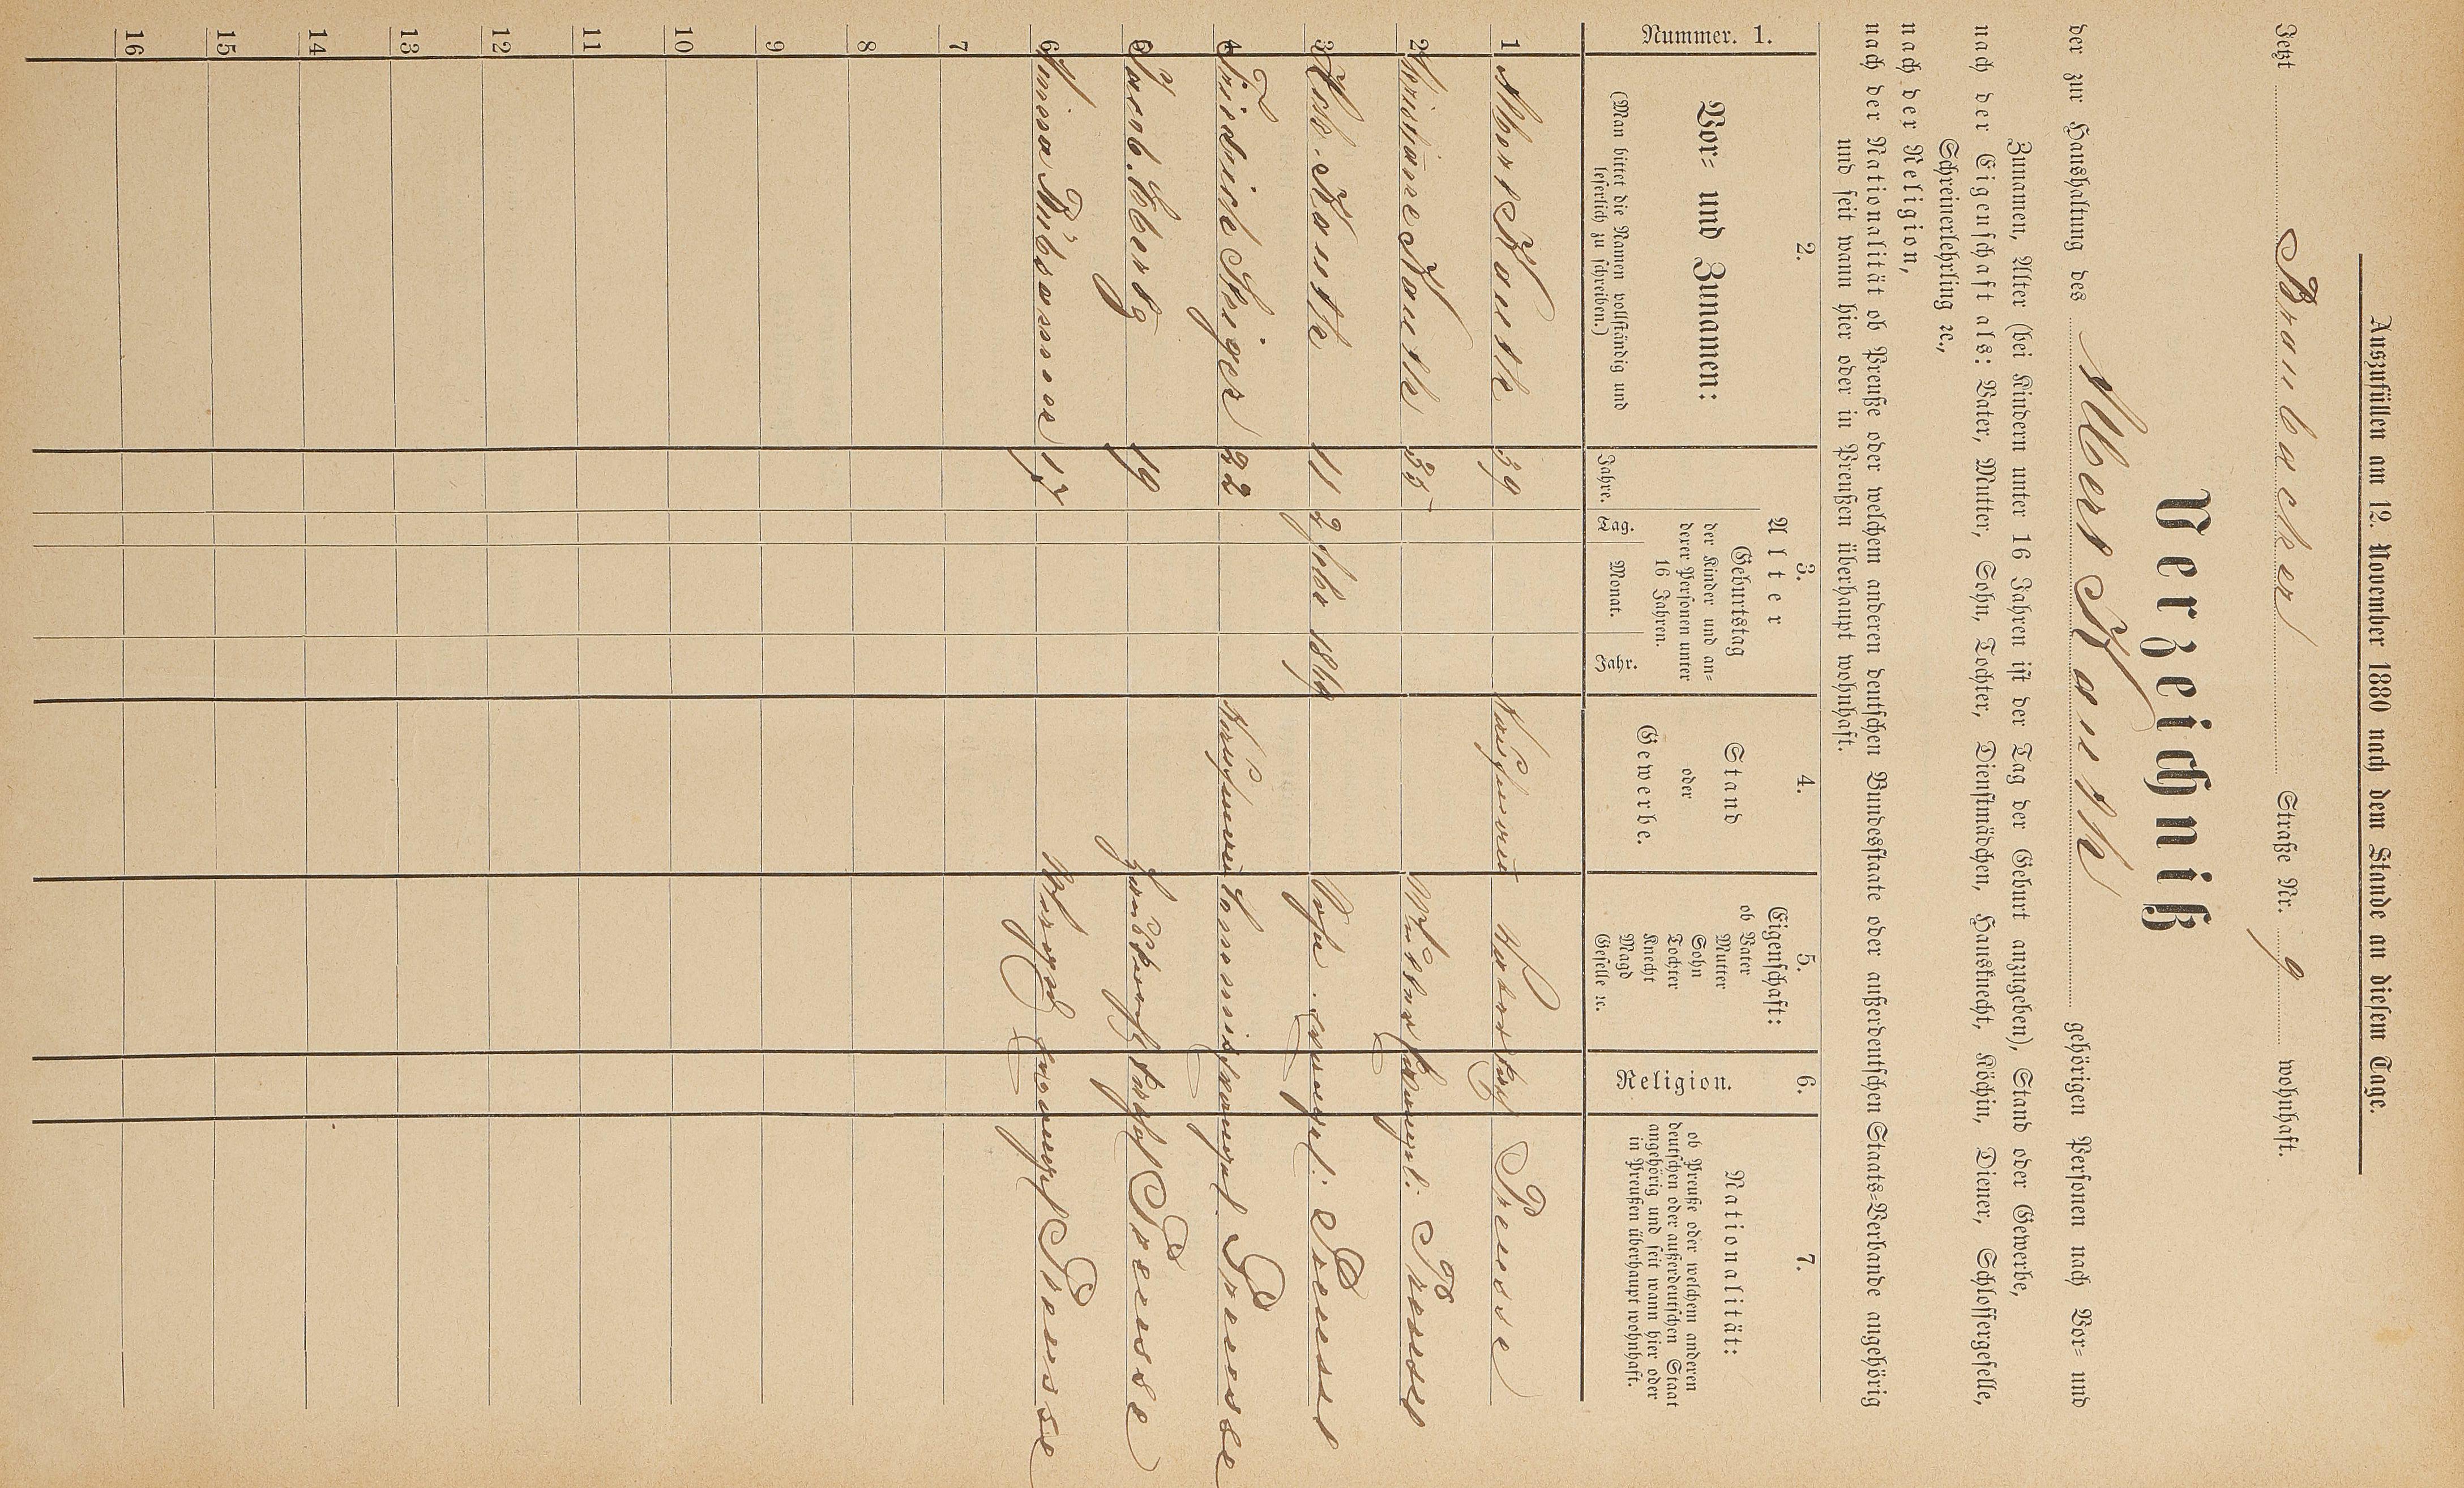 Auszufüllen am 12. November 1880 nach dem Stande an diesem Tage.
Jetzt Braubacher Straße Nr. 9 wohnhaft.
Verzeichniß
der zur Haushaltung des Albert Kauth gehörigen Personen nach Vor- und
Zunamen, Alter (bei Kindern unter 16 Jahren ist der Tag der Geburt anzugeben), Stand oder Gewerbe,
nach der Eigenschaft als: Vater, Mutter, Sohn, Tochter, Dienstmädchen, Hausknecht, Köchin, Diener, Schlossergeselle,
Schreinerlehrling ꝛc.,
nach der Religion,
nach der Nationalität ob Preuße oder welchem anderen deutschen Bundesstaate oder außerdeutschen Staats-Verbande angehörig
und seit wann hier oder in Preußen überhaupt wohnhaft.
Nummer. 1.
2.
Vor- und Zunamen:
(Man bittet die Namen vollständig und
leserlich zu schreiben.)
3.
Alter
Jahre.
Geburtstag
der Kinder und an-
derer Personen unter
16 Jahren.
Tag. Monat. Jahr.
4.
Stand
oder
Gewerbe.
5.
Eigenschaft:
ob Vater
Mutter
Sohn
Tochter
Knecht
Magd
Geselle ꝛc.
6.
Religion.
7.
Nationalität:
ob Preuße oder welchem anderen
deutschen oder außerdeutschen Staat
angehörig und seit wann hier oder
in Preußen überhaupt wohnhaft.
1 Albert Kauth 39 Kaufmann Vater Preusse
2 Kauth 35 Mutter Evangel. Preusse
3 Kauth 11 2 Febr 1869 Sohn evangel. Preusse
4 Friedrich 22 Kaufmann Commis evangel. Preusse
5 19 Preusse
6 17 evangel Preusse
7
8
9
10
11
12
13
14
15
16